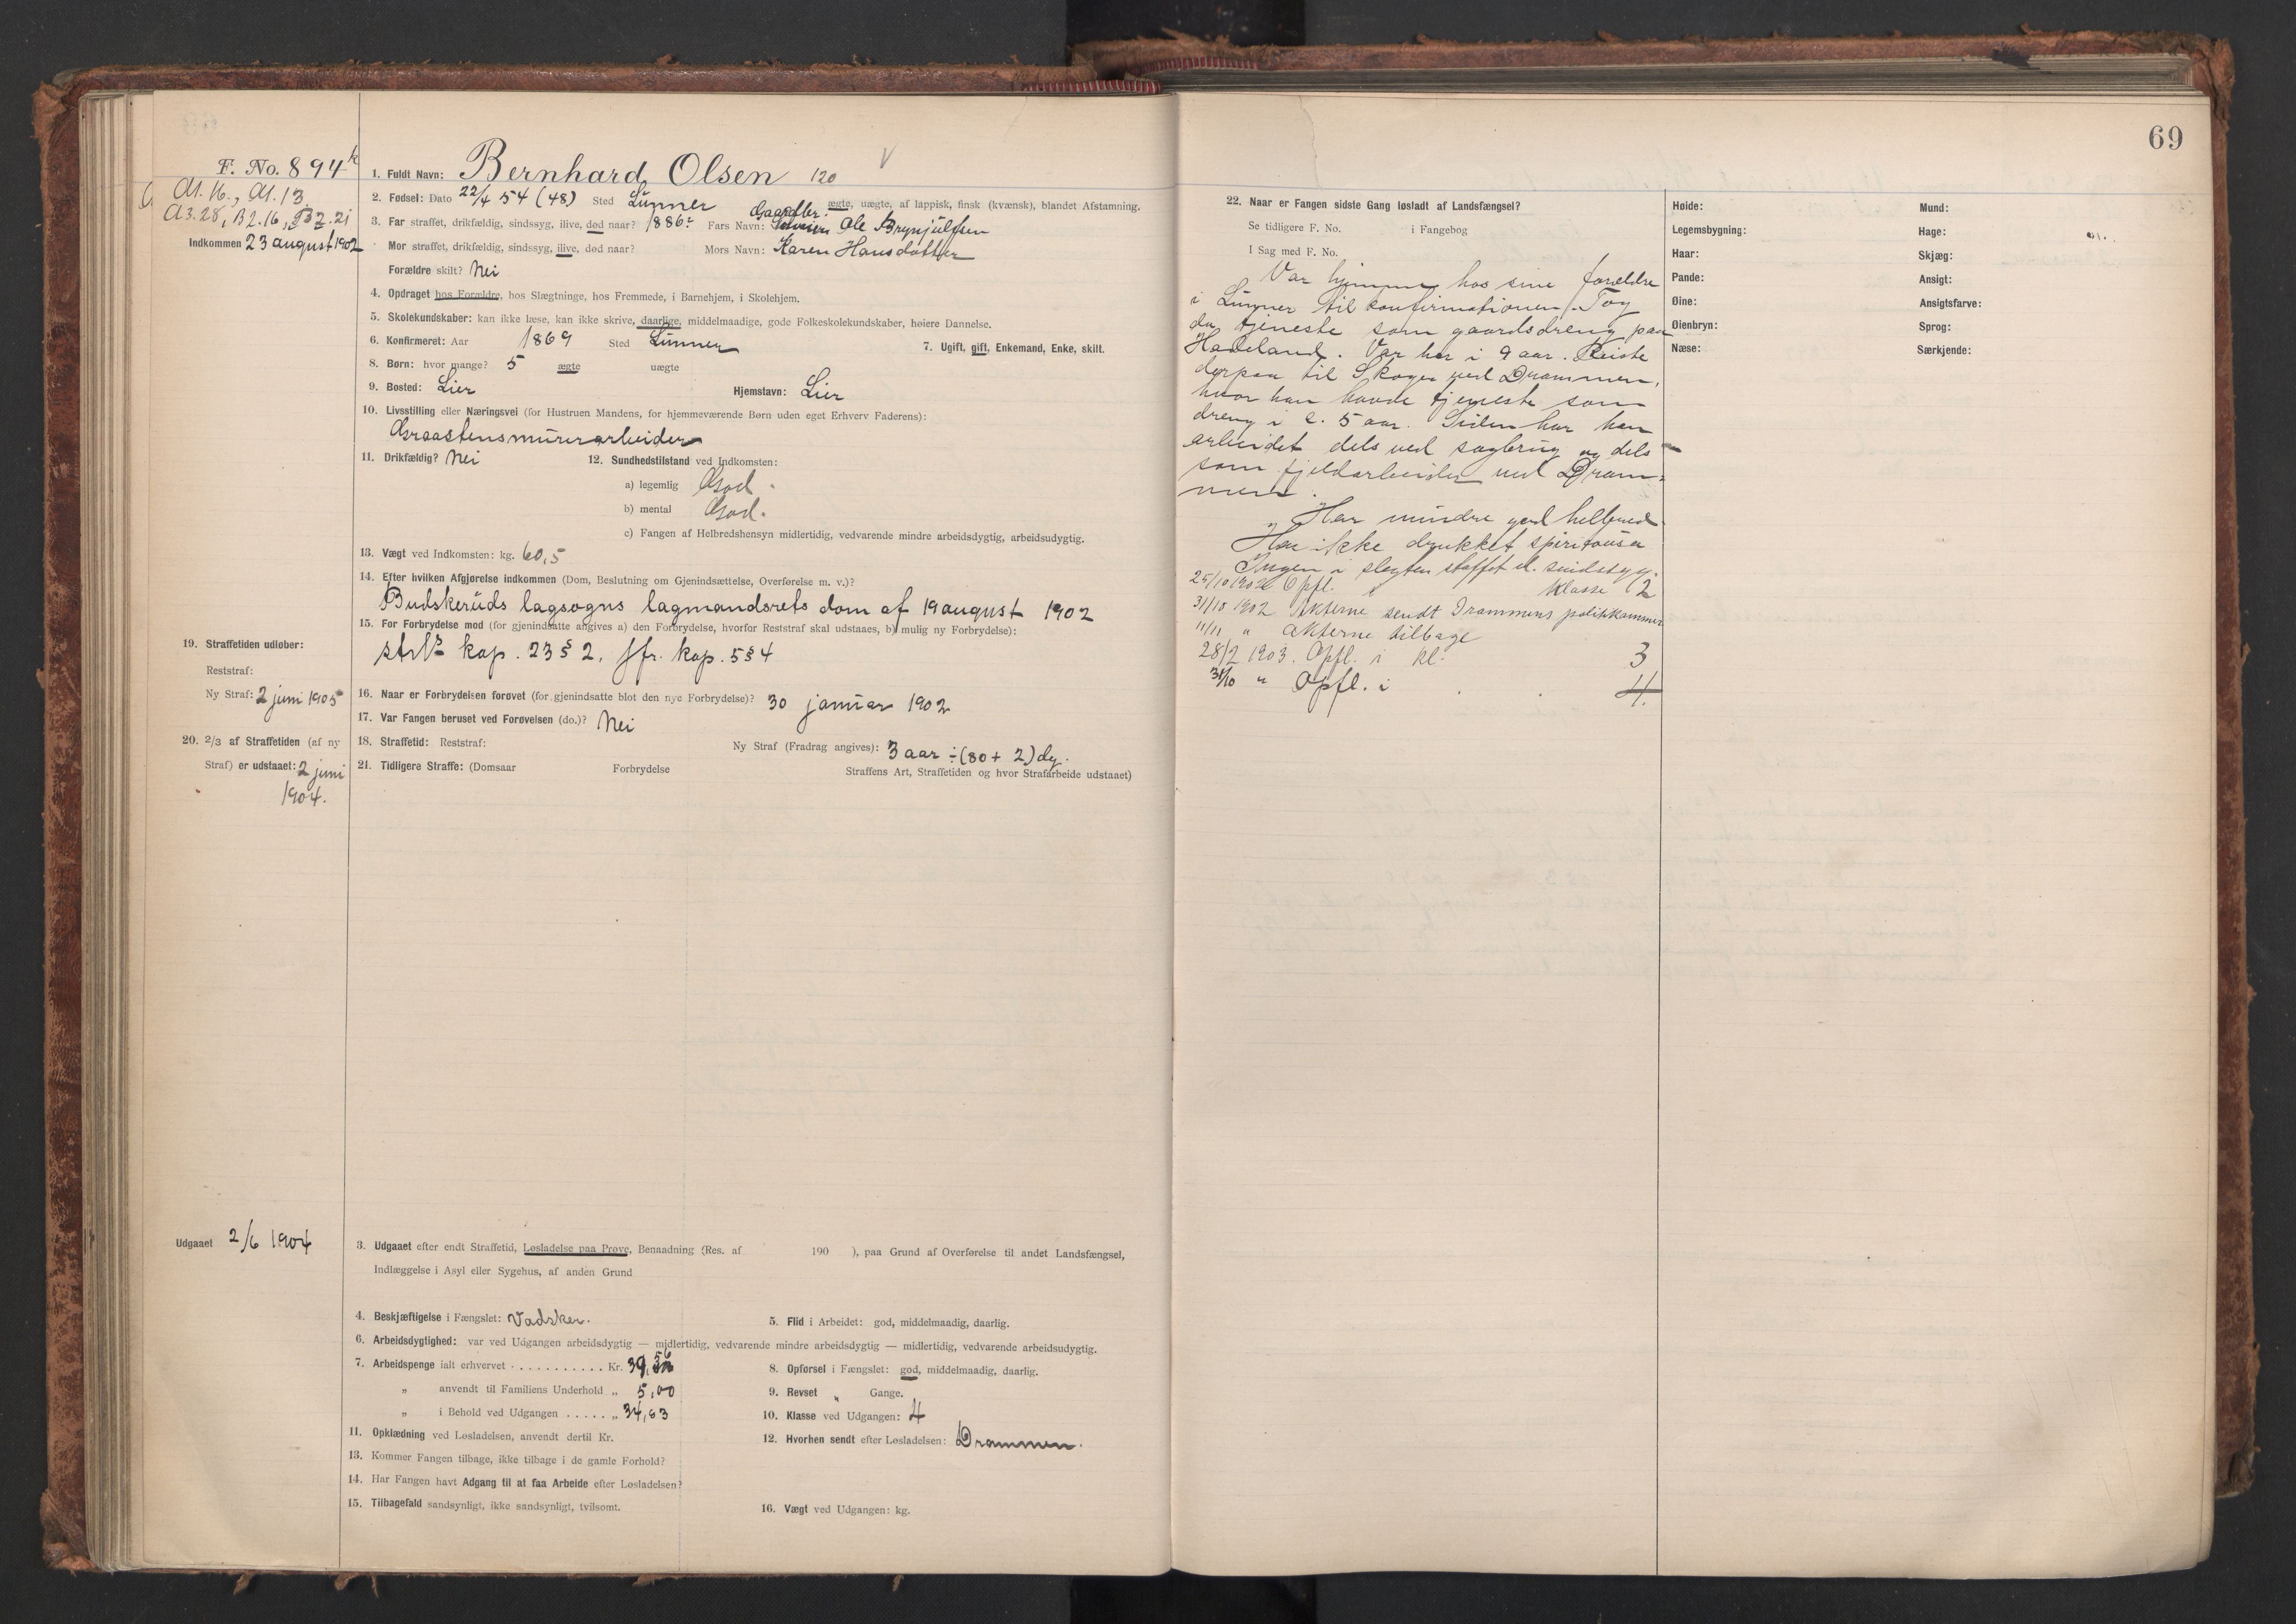 69
F. No. 894 k
A1.16., A1.13
A3.28, B2.16, B2.21
Indkommen 23 august 1902
1. Fuldt Navn: Bernhard Olsen 120
2. Fødsel: Dato 22/4 54 (48) Sted Lunner ægte, uægte, af lappisk, finsk (kvænsk), blandet Afstamning.
3. Far straffet, drikfældig, sindssyg, ilive, død naar? 1886 Fars Navn: Ole Brynjulfsen
Mor straffet, drikfældig, sindssyg, ilive, død naar? Mors Navn: Karen Hansdatter
Forældre skilt? Nei
4. Opdraget hos Forældre, hos Slægtninge, hos Fremmede, i Barnehjem, i Skolehjem.
5. Skolekundskaber: kan ikke læse, kan ikke skrive, daarlige, middelmaadige, gode Folkeskolekundskaber, høiere Dannelse.
6. Konfirmeret: Aar 1869 Sted Lunner 7. Ugift, gift, Enkemand, Enke, skilt.
8. Børn: hvor mange? 5 ægte uægte
9. Bosted: Lier Hjemstavn: Lier
10. Livsstilling eller Næringsvei (for Hustruen Mandens, for hjemmeværende Børn uden eget Erhverv Faderens):
Graastensmurerarbeider
11. Drikfældig? Nei 12. Sundhedstilstand ved Indkomsten:
a) legemlig God.
b) mental God.
c) Fangen af Helbredshensyn midlertidig, vedvarende mindre arbeidsdygtig, arbeidsudygtig.
13. Vægt ved Indkomsten: kg. 60,5
14. Efter hvilken Afgjørelse indkommen (Dom, Beslutning om Gjenindsættelse, Overførelse m. v.)?
Budskeruds lagsogns lagmandsrets dom af 19 august 1902
15. For Forbrydelse mod (for gjenindsatte angives a) den Forbrydelse, hvorfor Reststraf skal udstaaes, b) mulig ny Forbrydelse):
kap. 23 § 2, jfr. kap. 5 § 4
19. Straffetiden udløber:
Reststraf:
Ny Straf: 2 juni 1905
16. Naar er Forbrydelsen forøvet (for gjenindsatte blot den nye Forbrydelse)? 30 januar 1902
17. Var Fangen beruset ved Forøvelsen (do.)? Nei
20. 2/3 af Straffetiden (af ny
Straf) er udstaaet: 2 juni
1904.
18. Straffetid: Reststraf: Ny Straf (Fradrag angives): 3 aar ÷ (80 + 2) dg.
21. Tidligere Straffe: (Domsaar Forbrydelse Straffens Art, Straffetiden og hvor Strafarbeide udstaaet)
Udgaaet 2/6 1904
3. Udgaaet efter endt Straffetid, Løsladelse paa Prøve, Benaadning (Res. af 190 ), paa Grund af Overførelse til andet Landsfængsel,
Indlæggelse i Asyl eller Sygehus, af anden Grund
4. Beskjæftigelse i Fængslet: Vadsker. 5. Flid i Arbeidet: god, middelmaadig, daarlig.
6. Arbeidsdygtighed: var ved Udgangen arbeidsdygtig — midlertidig, vedvarende mindre arbeidsdygtig — midlertidig, vedvarende arbeidsudygtig.
7. Arbeidspenge ialt erhvervet . . . . . . . . . . . Kr. 39,56 8. Opførsel i Fængslet: god, middelmaadig, daarlig.
„ anvendt til Familiens Underhold „ 5,00 9. Revset „ Gange.
„ i Behold ved Udgangen . . . . . „ 34,63 10. Klasse ved Udgangen: 4
11. Opklædning ved Løsladelsen, anvendt dertil Kr. 12. Hvorhen sendt efter Løsladelsen: Drammen.
13. Kommer Fangen tilbage, ikke tilbage i de gamle Forhold?
14. Har Fangen havt Adgang til at faa Arbeide efter Løsladelsen?
15. Tilbagefald sandsynligt, ikke sandsynligt, tvilsomt. 16. Vægt ved Udgangen: kg.
22. Naar er Fangen sidste Gang løsladt af Landsfængsel?
Se tidligere F. No. i Fangebog
I Sag med F. No.
Var hjemme hos sine forældre
i Lunner til konfirmationen. Tog
da tjeneste som gaardsdreng paa
Hadeland. Var her i 9 aar. Reiste
derpaa til Skoger ved Drammen,
hvor han havde tjeneste som
dreng i c. 5 aar. Siden har han
arbeidet dels ved sagbrug og dels
som fjeldarbeider ved Dram-
men.
Har mindre god helbred.
Har ikke drukket spirituosa
Ingen i slegten staffet el. sindssyg.
25/10 1902 Opfl. i klasse 2
31/10 1902 Akterne sendt Drammens politikammer
11/11 „ Akterne tilbage
28/2 1903. Opfl. i kl. 3
31/10 „ Opfl. i . . 4.
Høide:
Legemsbygning:
Haar:
Pande:
Øine:
Øienbryn:
Næse:
Mund:
Hage:
Skjæg:
Ansigt:
Ansigtsfarve:
Sprog:
Særkjende: